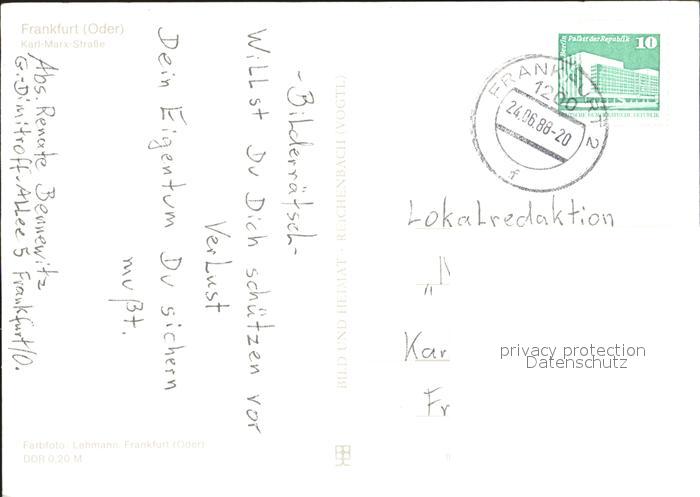 Frankfurt (Oder)
Karl-Marx-Straße
Abs: Renate Bennewitz
G.-Dimitroff-Allee 5 Frankfurt/O.
-Bilderrätsel-
Willst Du Dich schützen vor
Verlust
Dein Eigentum Du sichern
mußt.
Farbfoto: Lehmann, Frankfurt (Oder)
DDR 0,20 M
BILD UND HEIMAT · REICHENBACH (VOGTL)
Berlin Palast der Republik 10
DEUTSCHE DEMOKRATISCHE REPUBLIK
FRANKFURT 2
1200
24.06.88-20
f
Lokalredaktion
„N
Kar
Fr
privacy protection
Datenschutz